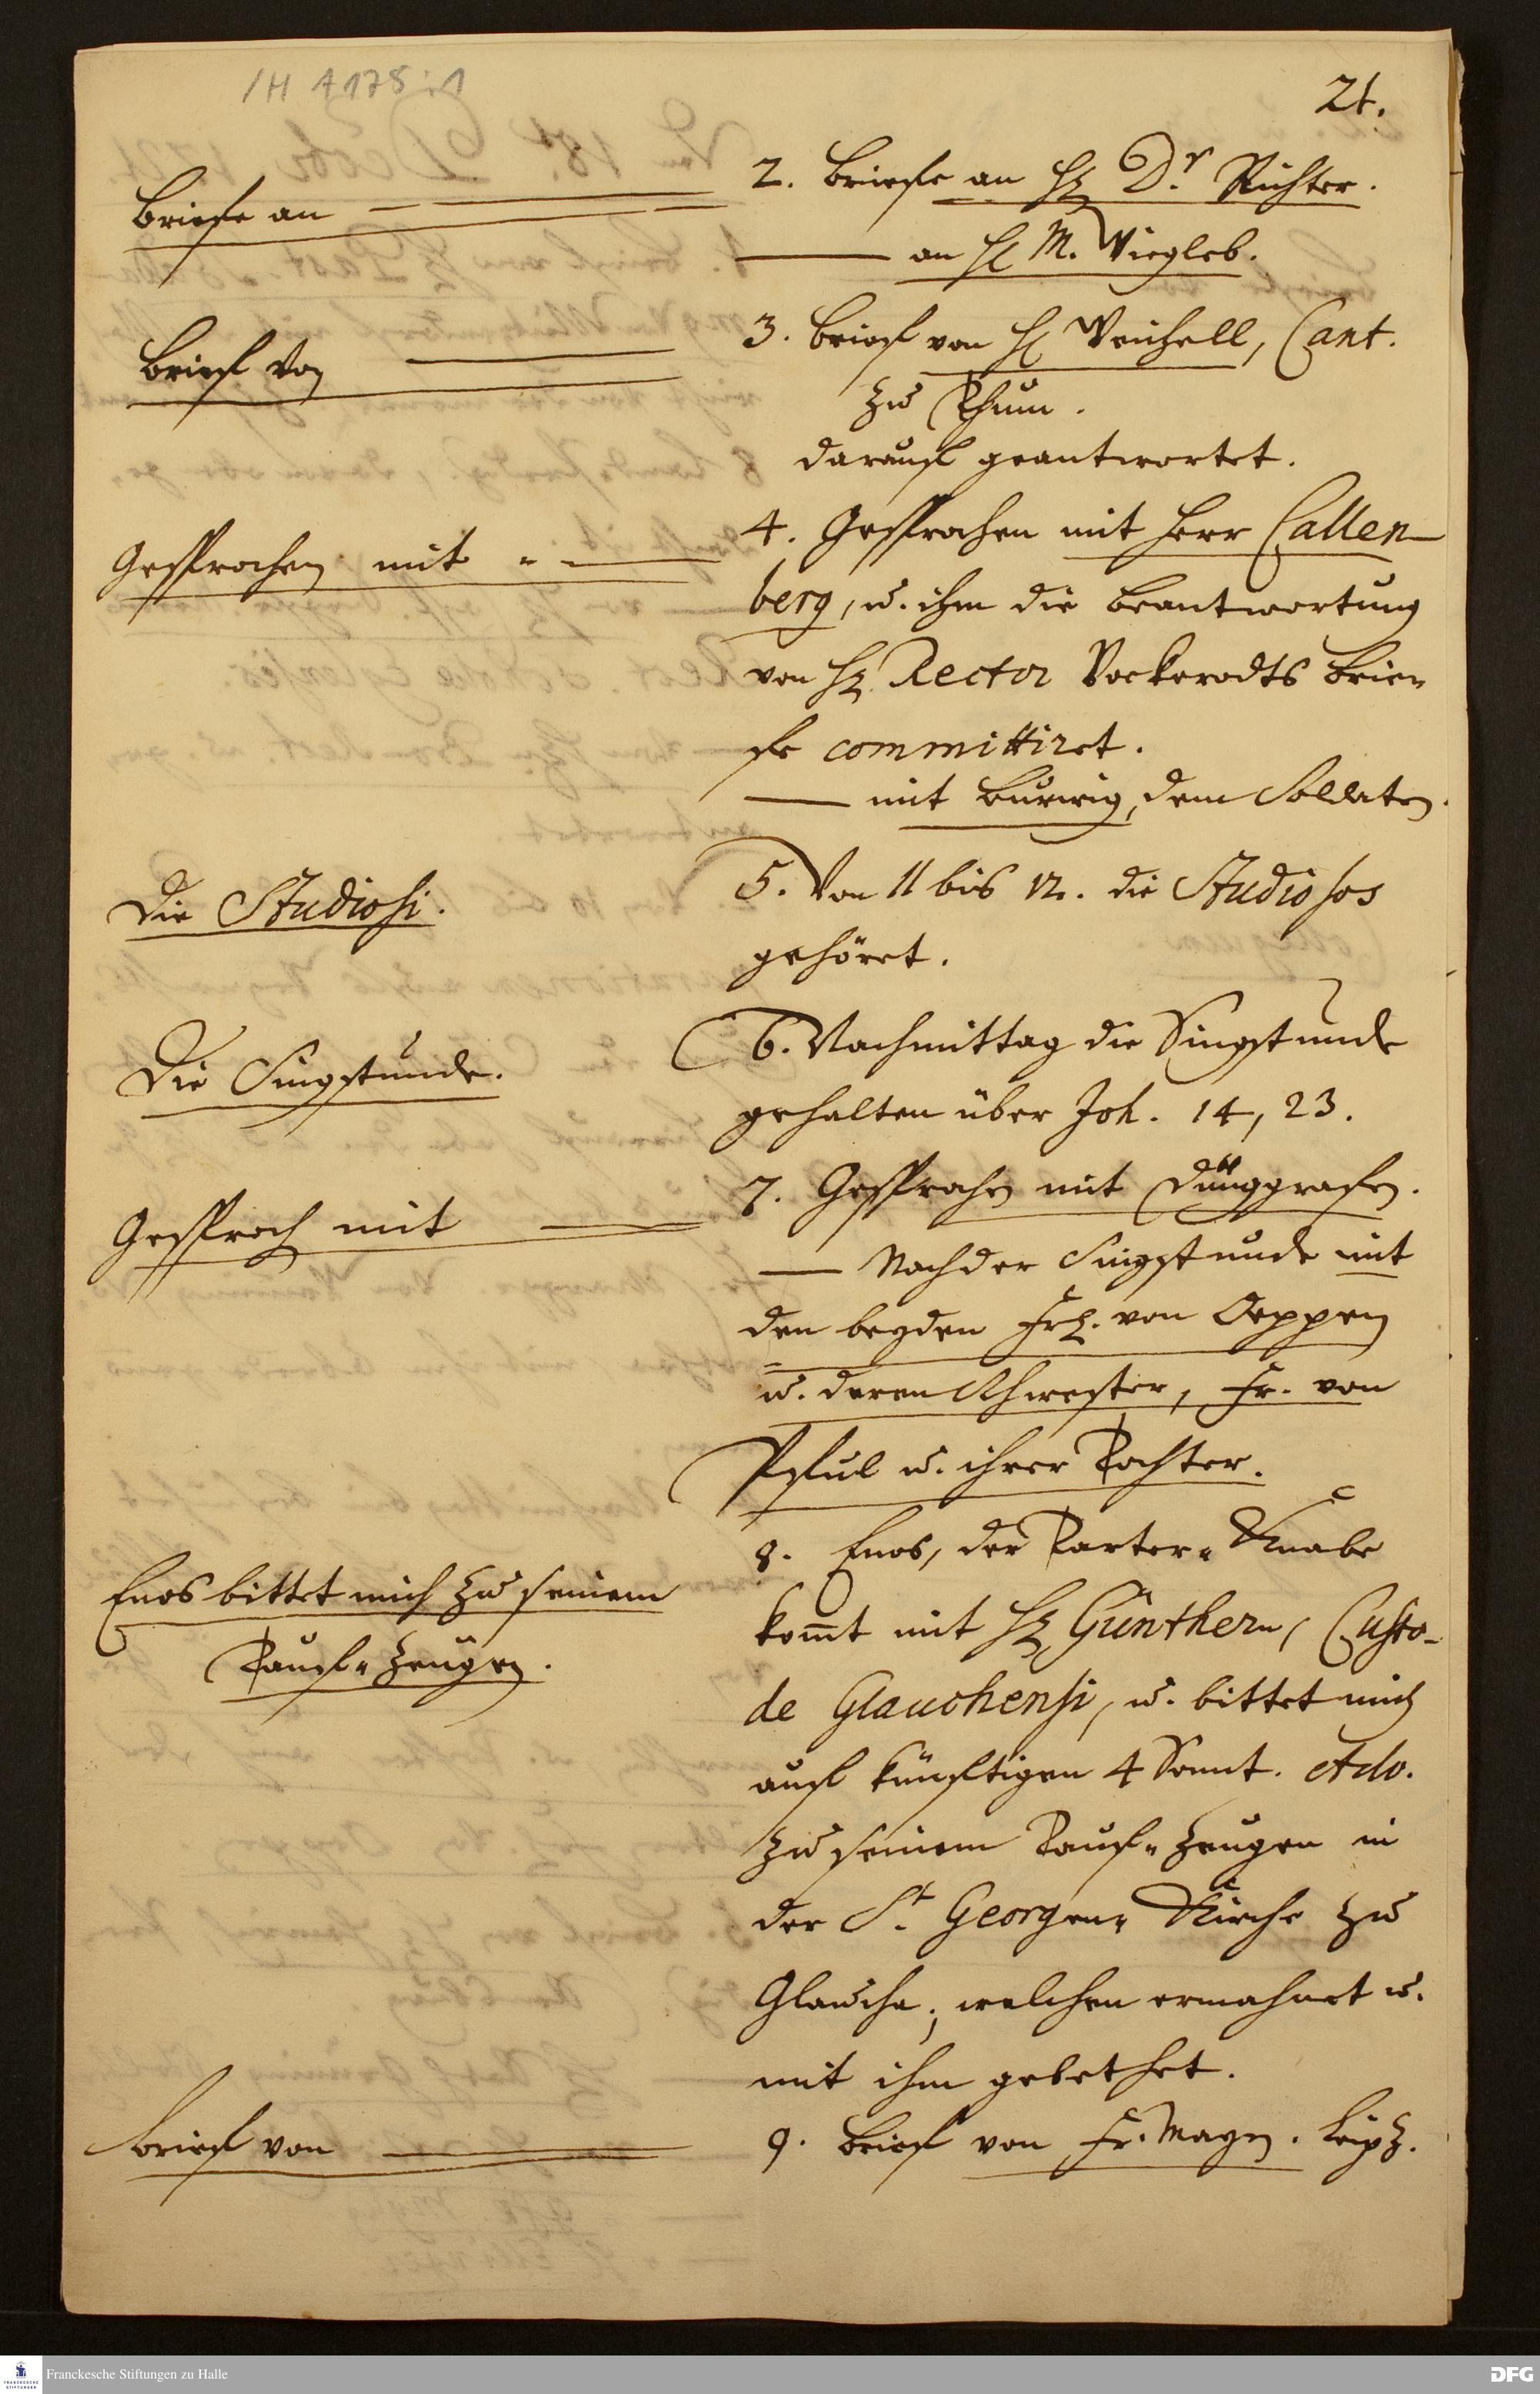 /H A 178:1
21.
Briefe an
2. Briefe an H. D.r Richter.
an H. M. Wiegleb.
Brief von
3. Brief von H. Weichell, Cant.
zu Thum.
darauf geantwortet.
Gesprochen mit
4. Gesprochen mit Herr Callen-
berg, u. ihm die Beantwortung
von H. Rector Vockerodts Brie-
fe committiret.
mit Burwig, dem Soldaten.
Die Studiosi.
5. Von 11 bis 12. die Studiosos
gehöret.
Die Singstunde.
6. Nachmittag die Singstunde
gehalten über Joh. 14, 23.
Gesproch mit
7. Gesprochen mit Dünggrafen.
Nach der Singstunde mit
den beyden Frl. von Oeppen
u. deren Schwester, Fr. von
Pful u. ihrer Tochter.
Enos bittet mich zu seinem
Tauf-Zeugen.
8. Enos, der Tarter-Knabe
kom̄t mit H. Günthern, Custo-
de Glauchensi, u. bittet mich
auf künftigen 4 Sonnt. Adv.
zu seinem Tauf-Zeugen in
der St. Georgen-Kirche zu
Glaucha, welchen ermahnet u.
mit ihm gebethet.
Brief von
9. Brief von Fr. Magn. Leipz.
Franckesche Stiftungen zu Halle
FRANCKESCHE STIFTUNGEN
DFG